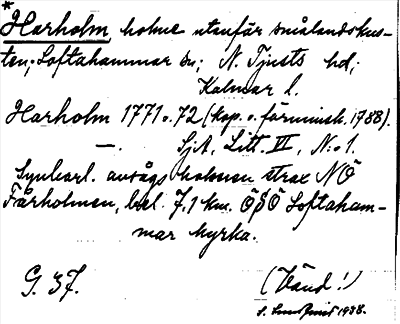 *
Harholm holme utanför smålandskus-
ten; Loftahammar sn; N. Tjusts hd;
Kalmar l.
Harholm 1771 o. 72 (kop. o. förminsk. 1788).
—. Sjk, Litt. II, N:o 1.
Synbarl. avsågs holmen strax NÖ
Fårholmen, bel. 7,1 km. ÖSÖ Loftaham-
mar kyrka.
G. 37. (Vänd!)
1938.